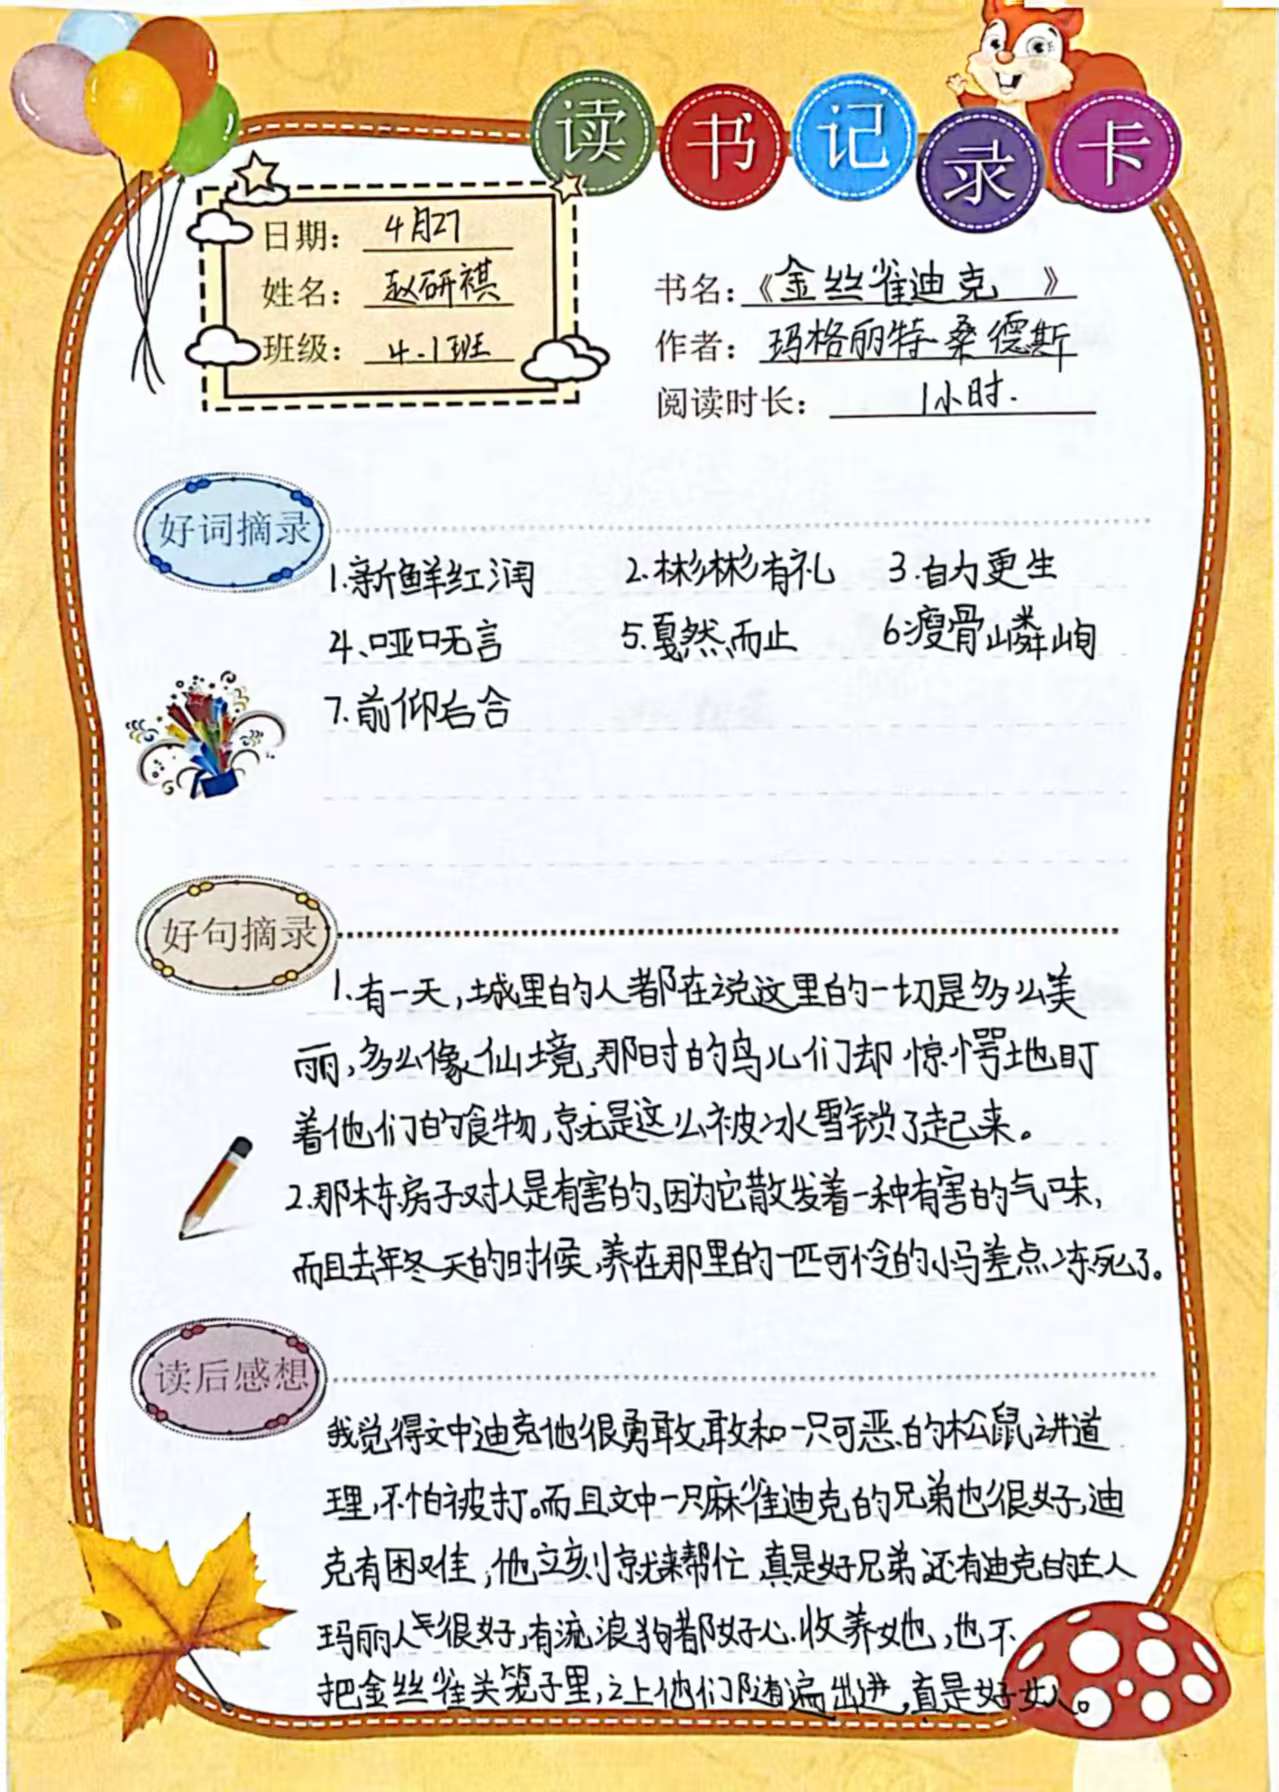 读书记录卡
日期：4月27
姓名：赵研祺
班级：4.1班
书名：《金丝雀迪克》
作者：玛格丽特·桑德斯
阅读时长：1小时.
好词摘录
1.新鲜红润 2.彬彬有礼 3.自力更生
4、哑口无言 5.戛然而止 6.瘦骨嶙峋
7.前仰后合
好句摘录
1.有一天，城里的人都在说这里的一切是多么美
丽，多么像仙境，那时的鸟儿们却惊愕地盯
着他们的食物，就是这么被冰雪锁了起来。
2.那栋房子对人是有害的，因为它散发着一种有害的气味，
而且去年冬天的时候，养在那里的一匹可怜的小马差点冻死了。
读后感想
我觉得文中迪克他很勇敢，敢和一只可恶的松鼠讲道
理，不怕被打。而且文中一只麻雀迪克的兄弟也很好，迪
克有困难，他立刻就来帮忙，真是好兄弟，还有迪克的主人
玛丽人气很好，有流浪狗都好心收养她，也不
把金丝雀关笼子里，让他们随遍出进，真是好女人。